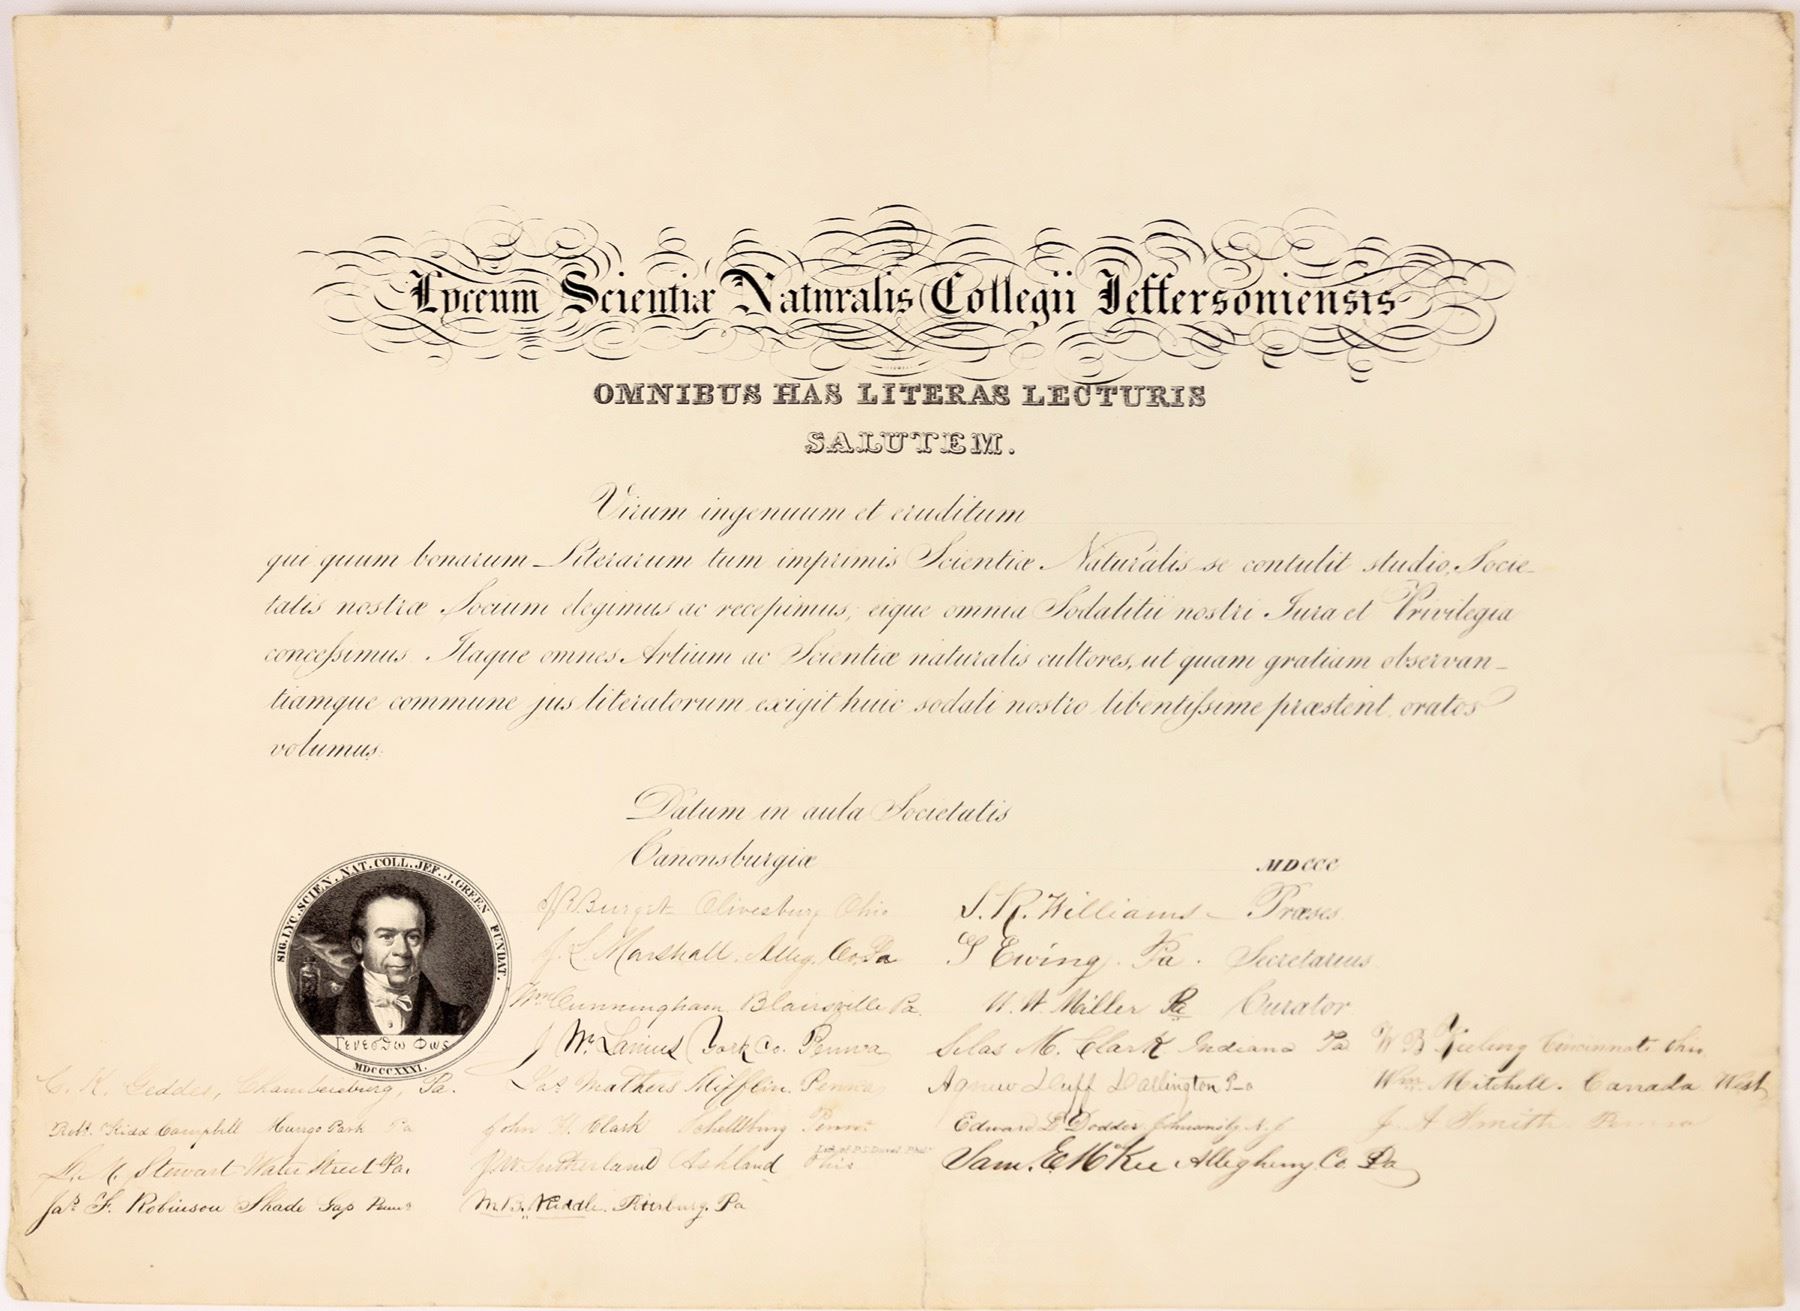 Lyceum Scientiæ Naturalis Collegii Jeffersoniensis
OMNIBUS HAS LITERAS LECTURIS
SALUTEM.
Virum ingenuum et eruditum
qui quum bonarum Literarum tum imprimis Scientiæ Naturalis se contulit studio, Socie-
tatis nostræ Socium elegimus ac recepimus; eique omnia Sodalitii nostri Jura et Privilegia
concessimus. Itaque omnes Artium ac Scientiæ naturalis cultores, ut quam gratiam observan-
tiamque commune jus literatorum exigit huic sodali nostro libentissime præstent, oratos
volumus.
Datum in aula Societatis
Canonsburgiæ MDCCC
SIG. LYC. SCIEN. NAT. COLL. JEF. J. GREEN FUNDAT.
Γενεσθω Φως
MDCCCXXXI.
Burget Olivesburg Ohio S. R. Williams - Præses
J. L. Marshall. Alleg. Co. Pa S Ewing. Pa. Secretarius
Wm Cunningham Blairsville Pa. Miller Pa Curator
J Wm Lanius York Co. Penna Silas M. Clark Indiana Pa W B Cincinnati Ohio
C. K. Geddes, Chambersburg, Pa. Jas Mathers Mifflin. Penna Agnew Duff Darlington Pa Wm. Mitchell. Canada West
Robt. Kidd Campbell Mungo Park Pa John H. Clark Schellsburg Penna Edward L Dodder N. J J. A Smith Penna
Stewart Water Street Pa. J. W. Sutherland Ashland Ohio Sam. E McKee Allegheny Co. Pa
Jas. F. Robinson Shade Gap Penna M. B. Riddle. Pa